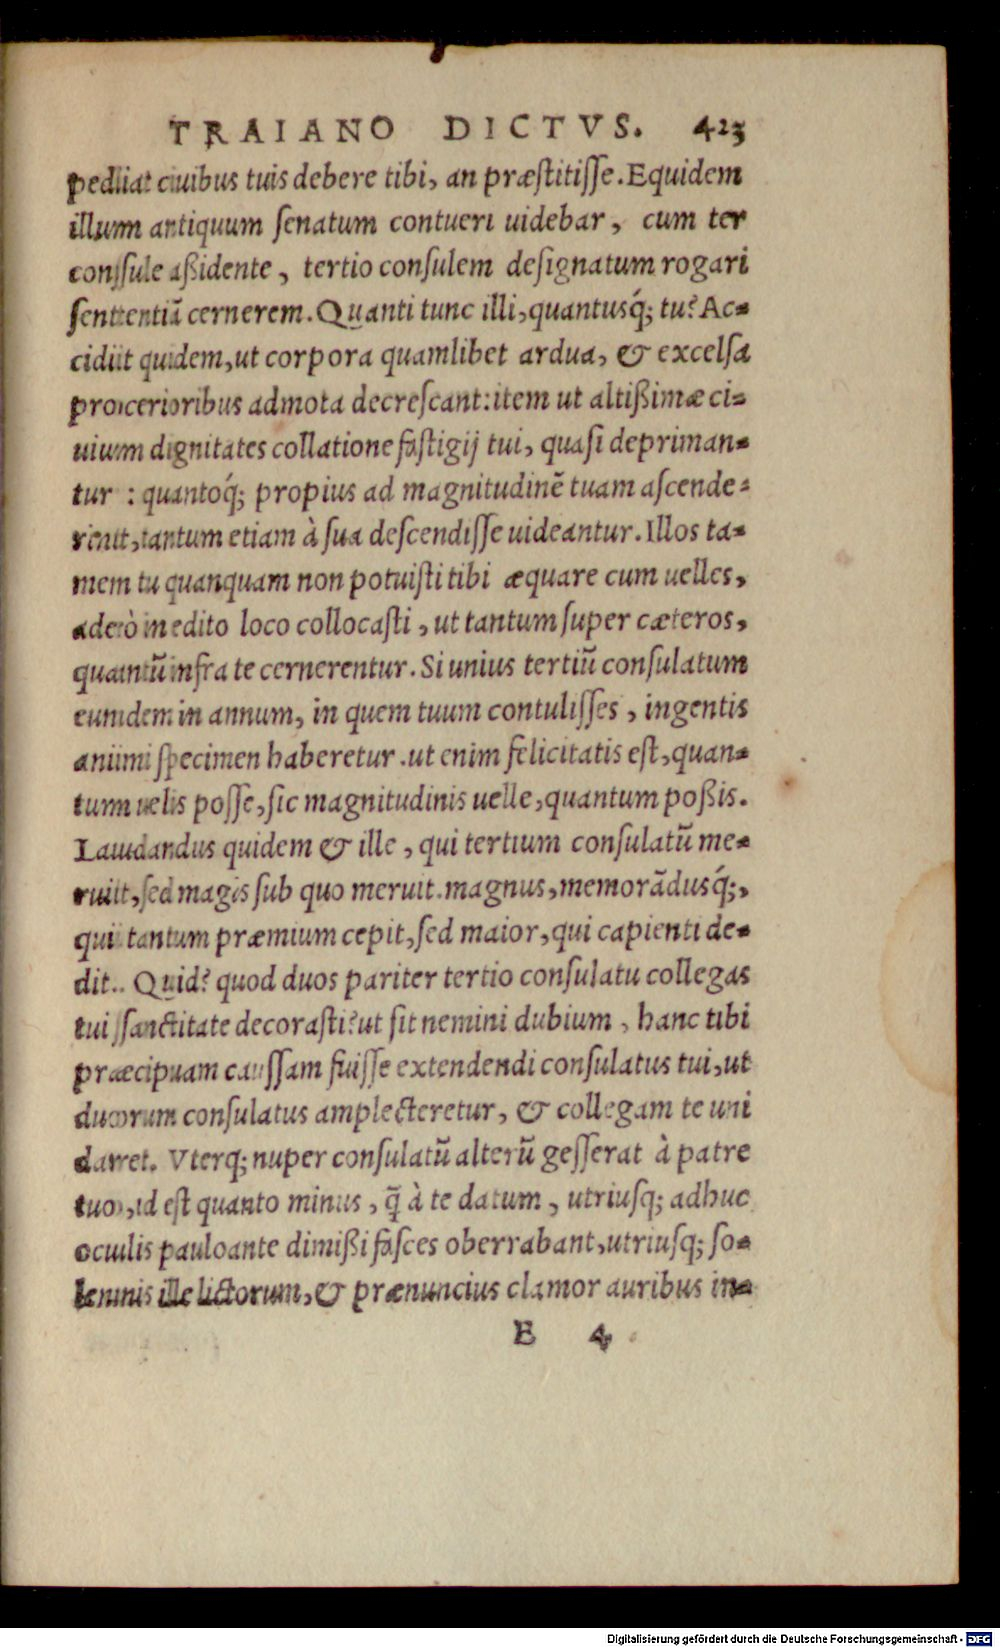 TRAIANO DICTVS. 423
pediat ciuibus tuis debere tibi, an præſtitiſſe. Equidem
illum antiquum ſenatum contueri uidebar, cum ter
conſule aßidente, tertio conſulem deſignatum rogari
ſententiā cernerem. Quanti tunc illi, quantusq́; tu? Ac-
cidit quidem, ut corpora quamlibet ardua, & excelſa
procerioribus admota decreſcant: item ut altißimæ ci-
uium dignitates collatione faſtigij tui, quaſi depriman-
tur : quantoq́; propius ad magnitudinē tuam aſcende-
rint, tantum etiam à ſua deſcendiſſe uideantur. Illos ta-
mem tu quanquam non potuiſti tibi æquare cum uelles,
adeò in edito loco collocaſti, ut tantum ſuper cæteros,
quantū infra te cernerentur. Si unius tertiū conſulatum
eundem in annum, in quem tuum contuliſſes, ingentis
animi ſpecimen haberetur. ut enim felicitatis eſt, quan-
tum uelis poſſe, ſic magnitudinis uelle, quantum poßis.
Laudandus quidem & ille, qui tertium conſulatū me-
ruit, ſed magis ſub quo meruit. magnus, memorādusq́;,
qui tantum præmium cepit, ſed maior, qui capienti de-
dit.. Quid? quod duos pariter tertio conſulatu collegas
tui ſanctitate decoraſti? ut ſit nemini dubium, hanc tibi
præcipuam cauſſam fuiſſe extendendi conſulatus tui, ut
duorum conſulatus amplecteretur, & collegam te uni
darret. Vterq; nuper conſulatū alterū geſſerat à patre
tuo, id eſt quanto minus, q̄ à te datum, utriusq; adhuc
oculis pauloante dimißi faſces oberrabant, utriusq; ſo-
lemnis ille lictorum, & prænuncius clamor auribus in-
E 4
Digitalisierung gefördert durch die Deutsche Forschungsgemeinschaft - DFG